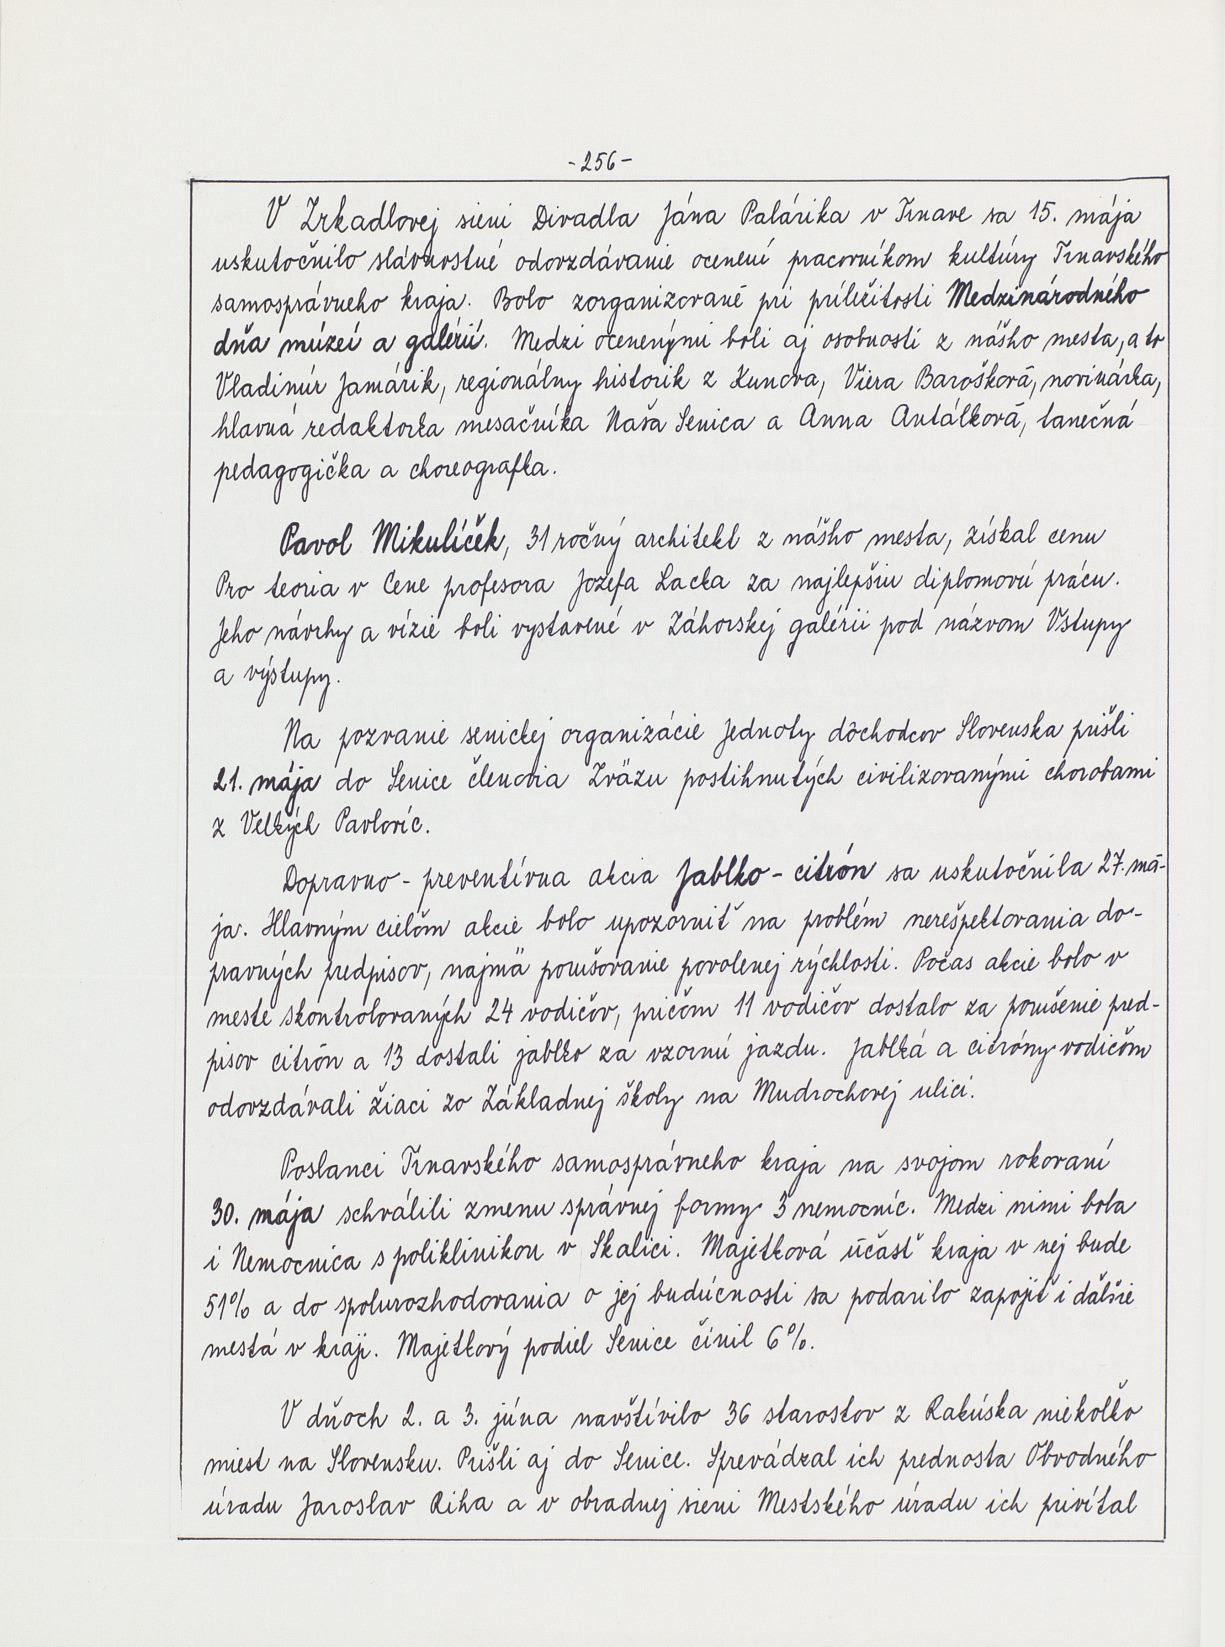 -256-
V Zrkadlovej sieni Divadla Jána Palárika v Trnave sa 15. mája
uskutočnilo slávnostné odovzdávanie ocenení pracovníkom kultúry Trnavského
samosprávneho kraja. Bolo zorganizované pri príležitosti Medzinárodného
dňa múzeí a galérií. Medzi ocenenými boli aj osobnosti z nášho mesta, a to
Vladimír Jamárik, regionálny historik z Kunova, Viera Barošková, novinárka,
hlavná redaktorka mesačníka Naša Senica a Anna Antálková, tanečná
pedagogička a choreografka.
Pavol Mikulíček, 31 ročný architekt z nášho mesta, získal cenu
Pro teoria v Cene profesora Jozefa Lacka za najlepšiu diplomovú prácu.
Jeho návrhy a vízie boli vystavené v Záhorskej galérii pod názvom Vstupy
a výstupy.
Na pozvanie senickej organizácie Jednoty dôchodcov Slovenska prišli
21. mája do Senice členovia Zväzu postihnutých civilizovanými chorobami
z Velkých Pavlovíc.
Dopravno-preventívna akcia Jablko-citrón sa uskutočnila 27. má-
ja. Hlavným cieľom akcie bolo upozorniť na problém nerešpektovania do-
pravných predpisov, najmä porušovanie povolenej rýchlosti. Počas akcie bolo v
meste skontrolovaných 24 vodičov, pričom 11 vodičov dostalo za porušenie pred-
pisov citrón a 13 dostali jablko za vzornú jazdu. Jablká a citróny vodičom
odovzdávali žiaci zo Základnej školy na Mudrochovej ulici.
Poslanci Trnavského samosprávneho kraja na svojom rokovaní
30. mája schválili zmenu správnej formy 3 nemocníc. Medzi nimi bola
i Nemocnica s poliklinikou v Skalici. Majetková účasť kraja v nej bude
51% a do spolurozhodovania o jej budúcnosti sa podarilo zapojiť i ďalšie
mestá v kraji. Majetkový podiel Senice činil 6%.
V dňoch 2. a 3. júna navštívilo 36 starostov z Rakúska niekoľko
miest na Slovensku. Prišli aj do Senice. Sprevádzal ich prednosta Obvodného
úradu Jaroslav Riha a v obradnej sieni Mestského úradu ich privítal